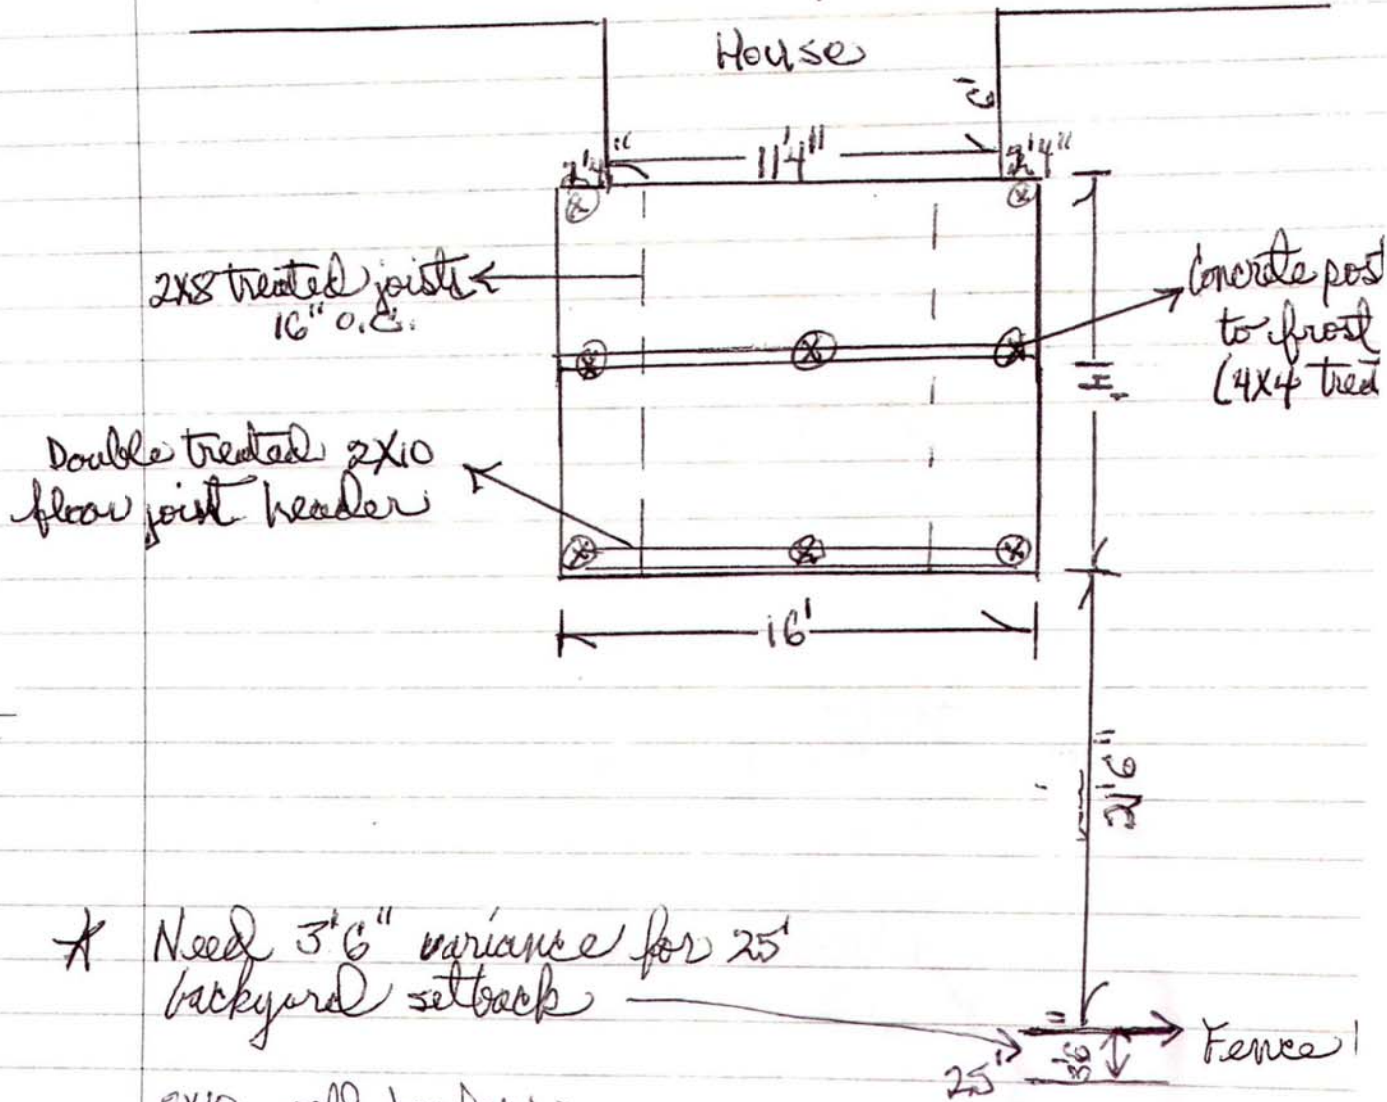 House
11'4"
2'4"
2'4"
2X8 treated joists
16" O.C.
Concrete post
to frost
(4X4 treat
Double treated 2X10
floor joist header
16'
21'6"
* Need 3'6" variance for 25'
backyard setback
Fence
3'6"
25'
2X10